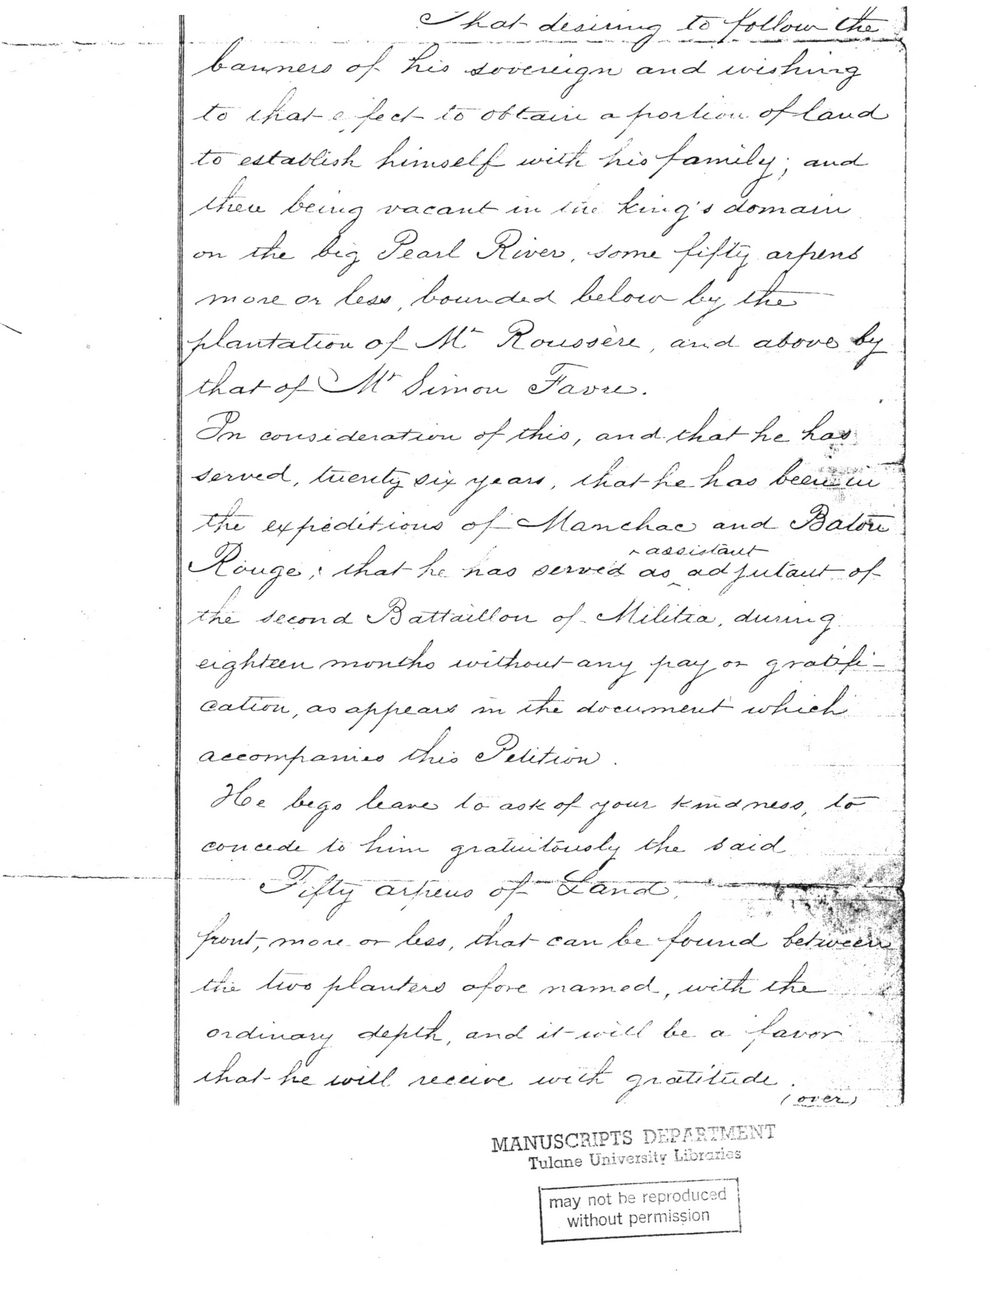 That desiring to follow the
banners of his sovereign and wishing
to that effect to obtain a portion of land
to establish himself with his family; and
there being vacant in the king's domain
on the big Pearl River, some fifty arpens
more or less, bounded below by the
plantation of Mr Roussère, and above by
that of Mr Simon Favre.
In consideration of this, and that he has
served, twenty six years, that he has been in
the expeditions of Manchac and Baton
assistant
Rouge; that he has served as ‸ adjutant of
the second Battaillon of Militia, during
eighteen months without any pay or gratifi-
cation, as appears in the document which
accompanies this Petition.
He begs leave to ask of your kindness, to
concede to him gratuitously the said
Fifty arpens of Land,
front, more or less, that can be found between
the two planters afore named, with the
ordinary depth, and it will be a favor
that he will receive with gratitude.
(over)
MANUSCRIPTS DEPARTMENT
Tulane University Libraries
may not be reproduced
without permission